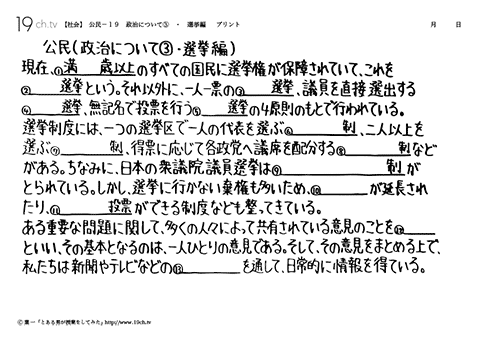 19ch.tv 【社会】 公民－19 政治について③ ・ 選挙編 プリント 月 日
公民(政治について③・選挙編)
現在、①満 歳以上のすべての国民に選挙権が保障されていて、これを
② 選挙という。それ以外に、一人一票の③ 選挙、議員を直接選出する
④ 選挙、無記名で投票を行う⑤ 選挙の4原則のもとで行われている。
選挙制度には、一つの選挙区で一人の代表を選ぶ⑥ 制、二人以上を
選ぶ⑦ 制、得票に応じて各政党へ議席を配分する⑧ 制など
がある。ちなみに、日本の衆議院議員選挙は⑨ 制が
とられている。しかし、選挙に行かない棄権も多いため、⑩ が延長され
たり、⑪ 投票ができる制度なども整ってきている。
ある重要な問題に関して、多くの人々によって共有されている意見のことを⑫
といい、その基本となるのは、一人ひとりの意見である。そして、その意見をまとめる上で、
私たちは新聞やテレビなどの⑬ を通して、日常的に情報を得ている。
© 葉一「とある男が授業をしてみた」http://www.19ch.tv